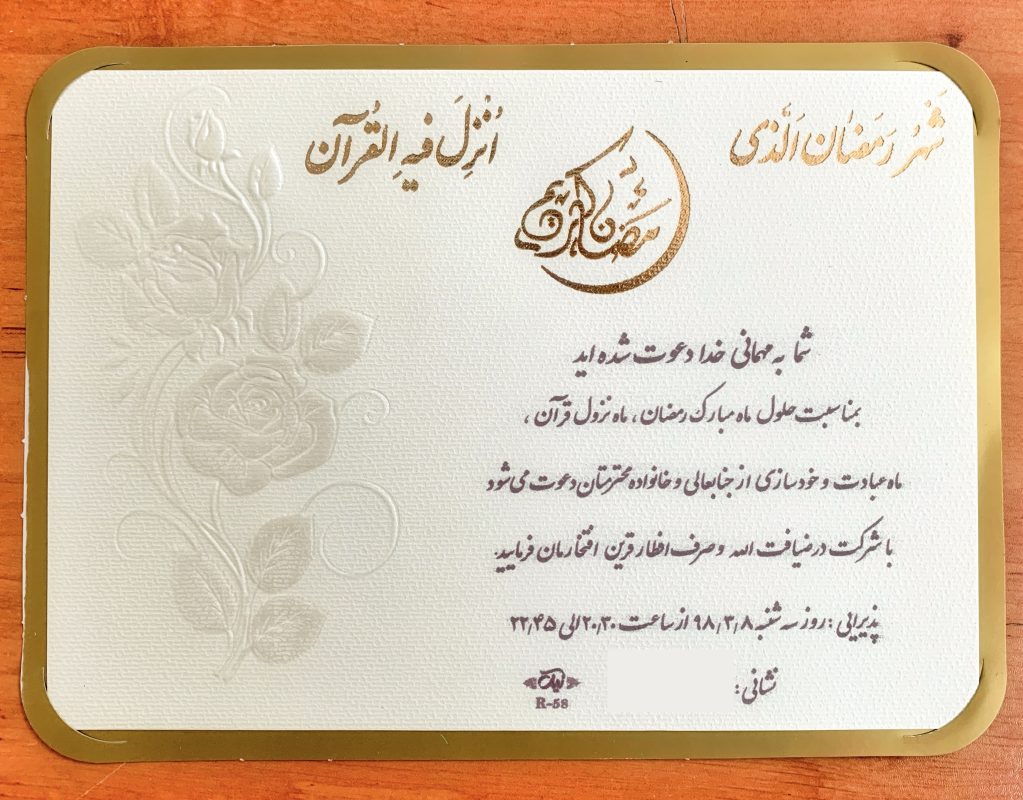 شَهْرُ رَمَضٰان اَلَّذی
اُنْزِلَ فیهِ الْقُرآن
رمضان کریم
شما به مهمانی خدا دعوت شده اید
بمناسبت حلول ماه مبارک رمضان، ماه نزول قرآن،
ماه عبادت و خودسازی از جنابعالی و خانواده محترمتان دعوت می شود
با شرکت در ضیافت الله و صرف افطار قرین افتخارمان فرمایید.
پذیرایی: روز سه شنبه ۹۸٫۳٫۸ از ساعت ۲۰٫۳۰ الی ۲۲٫۴۵
نشانی:
R-58